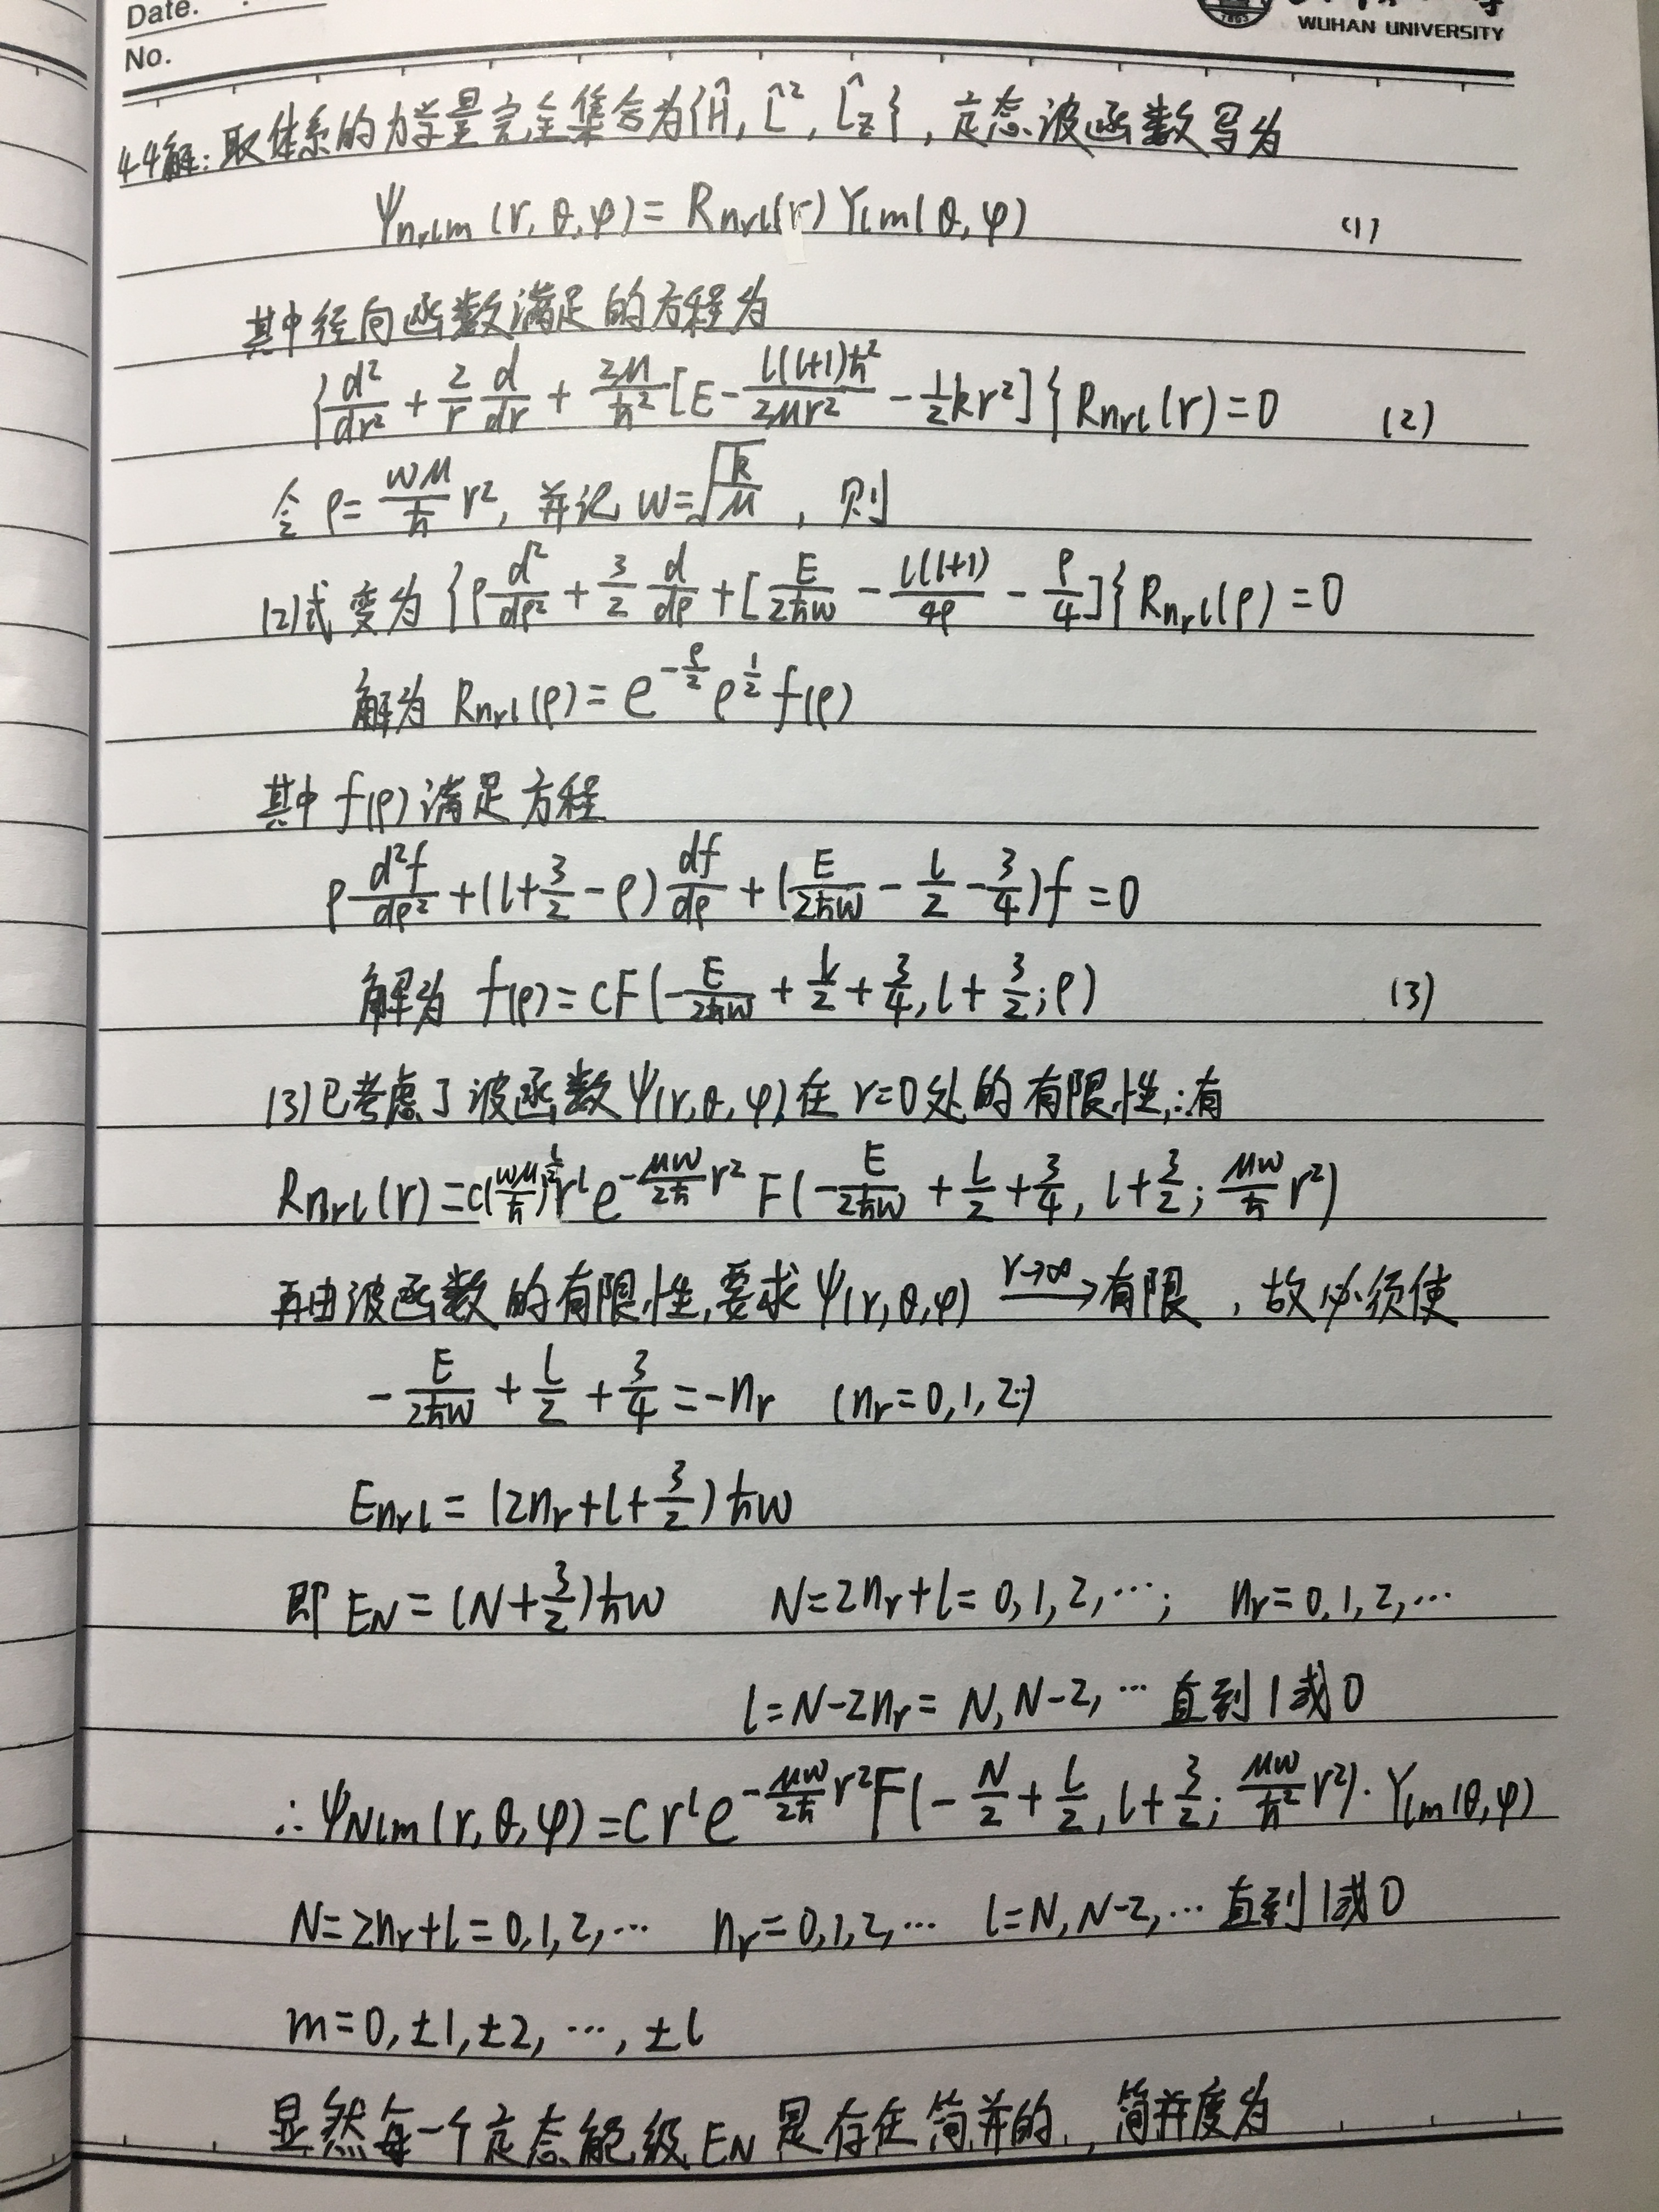 Date.
No.
WUHAN UNIVERSITY
4.4解:取体系的力学量完全集合为{Ĥ, L̂², L̂z},定态波函数写为
Ψnrlm (r, θ, φ) = Rnrl(r) Ylm(θ, φ) (1)
其中径向函数满足的方程为
{d²/dr² + 2/r d/dr + 2μ/ħ² [E - l(l+1)ħ²/2μr² - 1/2 kr²]} Rnrl(r) = 0 (2)
令 ρ = ωμ/ħ r², 并记 ω = √(k/μ) , 则
(2)式变为 {ρ d²/dρ² + 3/2 d/dρ + [E/2ħω - l(l+1)/4ρ - ρ/4]} Rnrl(ρ) = 0
解为 Rnrl(ρ) = e^(-ρ/2) ρ^(1/2) f(ρ)
其中 f(ρ) 满足方程
ρ d²f/dρ² + (l + 3/2 - ρ) df/dρ + (E/2ħω - l/2 - 3/4) f = 0
解为 f(ρ) = CF(-E/2ħω + l/2 + 3/4, l + 3/2; ρ) (3)
(3)已考虑了波函数Ψ(r, θ, φ)在 r=0 处的有限性,∴有
Rnrl(r) = C(ωμ/ħ)^(l/2) r^l e^(-μω/2ħ r²) F(-E/2ħω + l/2 + 3/4, l + 3/2; μω/ħ r²)
再由波函数的有限性,要求 Ψ(r, θ, φ) r→∞→ 有限 , 故必须使
-E/2ħω + l/2 + 3/4 = -nr (nr = 0, 1, 2…)
Enrl = (2nr + l + 3/2) ħω
即 EN = (N + 3/2) ħω N = 2nr + l = 0, 1, 2, …; nr = 0, 1, 2, …
l = N - 2nr = N, N-2, … 直到 1 或 0
∴ ΨNlm (r, θ, φ) = C r^l e^(-μω/2ħ r²) F(-N/2 + l/2, l + 3/2; μω/ħ² r²) · Ylm(θ, φ)
N = 2nr + l = 0, 1, 2, … nr = 0, 1, 2, … l = N, N-2, … 直到 1 或 0
m = 0, ±1, ±2, …, ±l
显然每一个定态能级 EN 是存在简并的, 简并度为